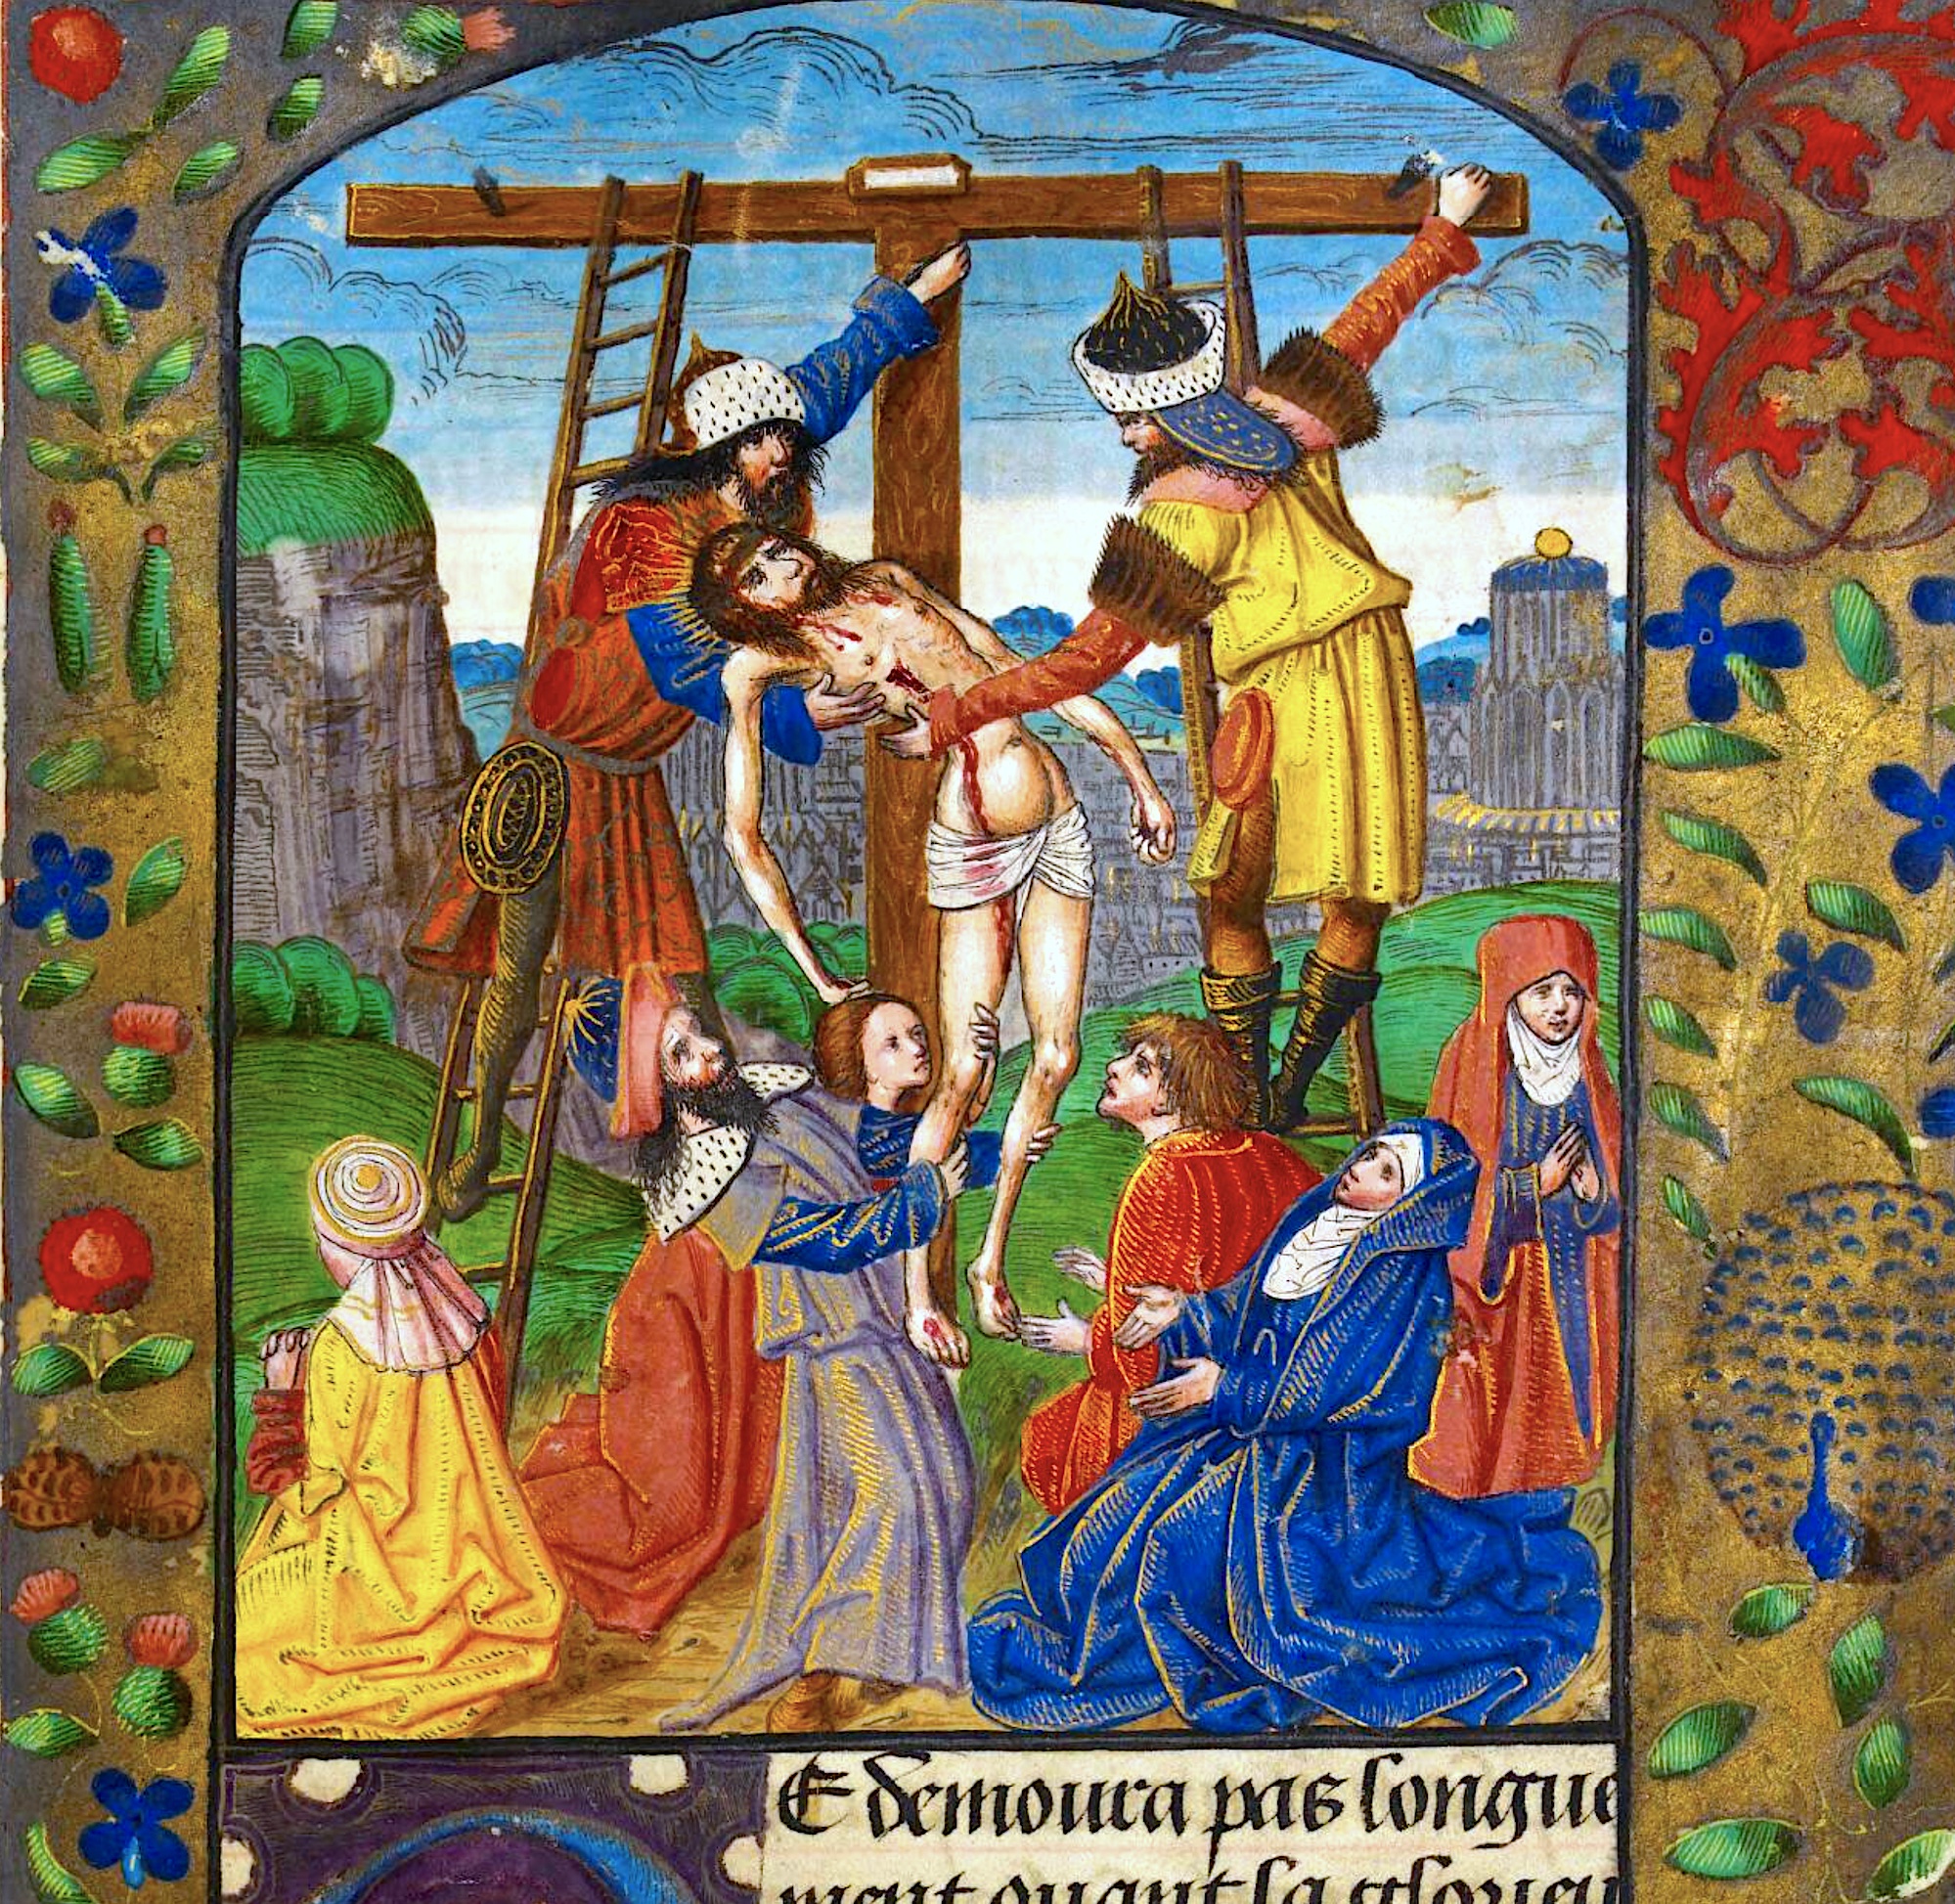 E demoura pas longue
ment quant la glorieu